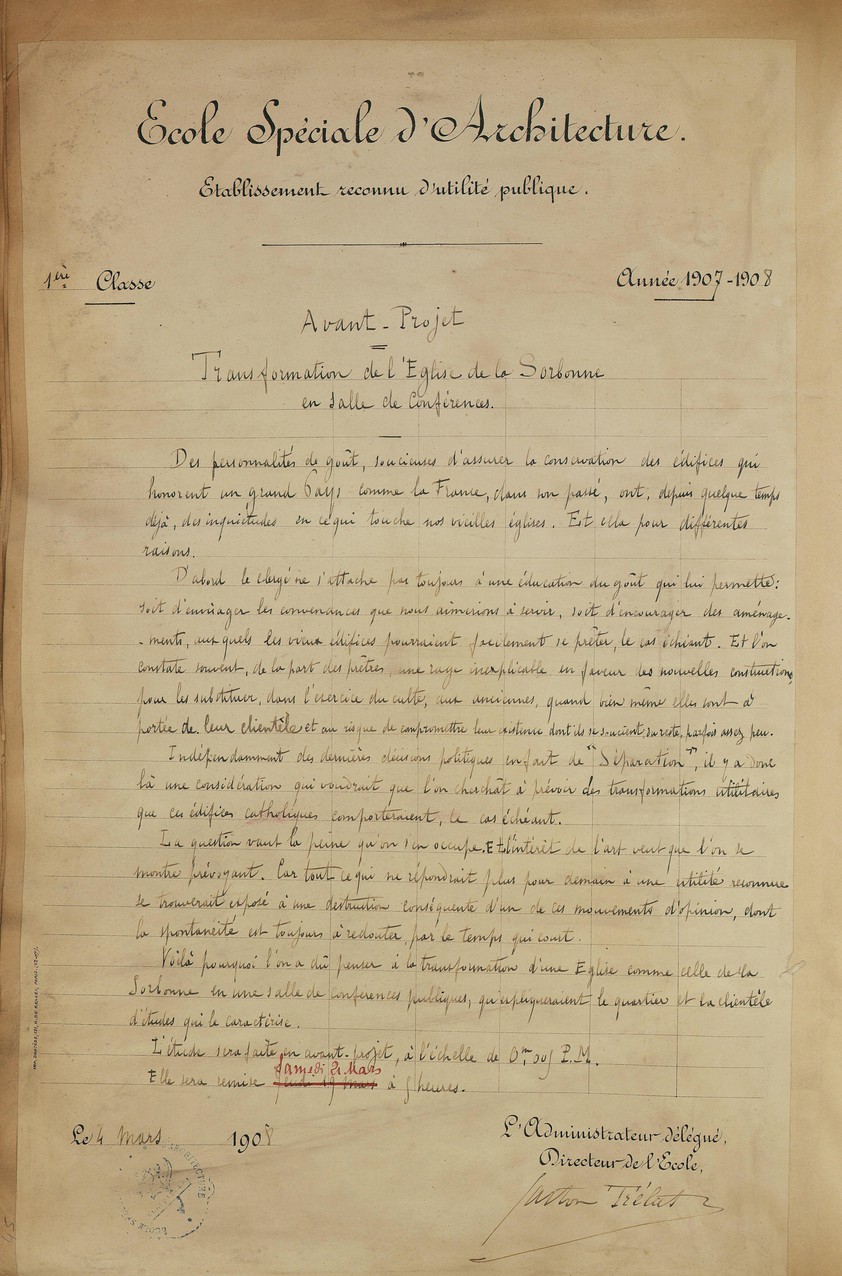 Ecole Spéciale d'Architecture.
Etablissement reconnu d'utilité publique.
1ère Classe
Année 1907-1908
Avant-Projet
Transformation de l'Eglise de la Sorbonne
en Salle de Conférences.
Des personnalités de goût, soucieuses d'assurer la conservation des édifices qui
honorent un grand Pays comme la France, dans son passé, ont, depuis quelque temps
déjà, des inquiétudes en ce qui touche nos vieilles églises. Et cela pour différentes
raisons.
D'abord le clergé ne s'attache pas toujours à une éducation du goût qui lui permette:
soit d'envisager les convenances que nous aimerions à servir, soit d'encourager des aménage-
-ments, auxquels les vieux édifices pourraient facilement se prêter, le cas échéant. Et l'on
constate souvent, de la part des prêtres, une rage inexplicable en faveur des nouvelles constructions,
pour les substituer, dans l'exercice du culte, aux anciennes, quand bien même elles sont à
portée de leur clientèle et au risque de compromettre leur existence dont ils se soucient, du reste, parfois assez peu.
Indépendamment des dernières décisions politiques en fait de "Séparation", il y a donc
là une considération qui voudrait que l'on cherchât à prévoir des transformations utilitaires
que ces édifices catholiques comporteraient, le cas échéant.
La question vaut la peine qu'on s'en occupe. Et l'intérêt de l'art veut que l'on se
montre prévoyant. Car tout ce qui ne répondrait plus pour demain à une utilité reconnue
se trouverait exposé à une destruction conséquente d'un de ces mouvements d'opinion, dont
la spontanéité est toujours à redouter, par le temps qui court.
Voilà pourquoi l'on a dû penser à la transformation d'une Eglise comme celle de la
Sorbonne en une salle de conférences publiques, qu'expliqueraient le quartier et la clientèle
d'études qui le caractérise.
L'étude sera faite en avant-projet, à l'échelle de 0m,005 P.M.
Samedi 21 Mars
Elle sera remise Jeudi 19 Mars à 5 heures.
Le 4 Mars 1908
L'Administrateur délégué,
Directeur de l'Ecole,
Gaston Trélat